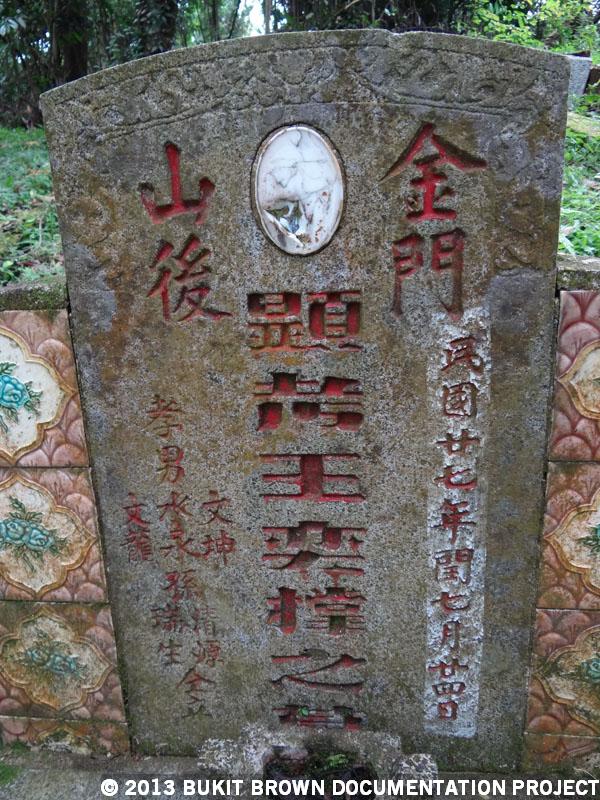 金門
山後
民國廿七年閏七月廿四日
顯考王奕撑之墓
孝男
文坤
水永
文龍
孫
清源
瑞生
仝立
© 2013 BUKIT BROWN DOCUMENTATION PROJECT